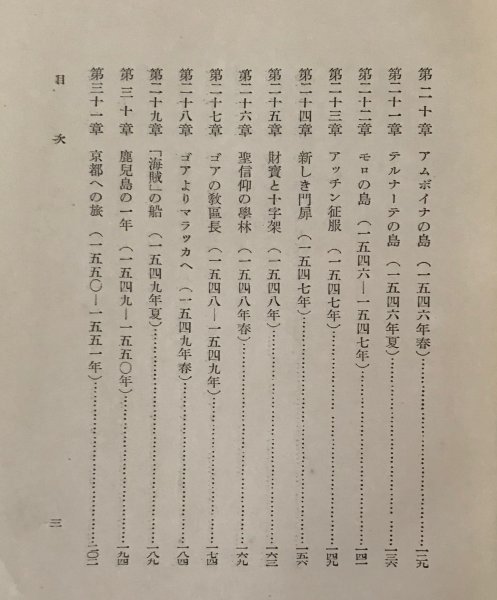 第二十章 アムボイナの島（一五四六年春）……一二九
第二十一章 テルナーテの島（一五四六年夏）……一三六
第二十二章 モロの島（一五四六―一五四七年）……一四一
第二十三章 アッチン征服（一五四七年）……一四九
第二十四章 新しき門扉（一五四七年）……一五六
第二十五章 財寶と十字架（一五四八年）……一六三
第二十六章 聖信仰の學林（一五四八年春）……一六九
第二十七章 ゴアの敎區長（一五四八―一五四九年）……一七四
第二十八章 ゴアよりマラッカへ（一五四九年春）……一八四
第二十九章 「海賊」の船（一五四九年夏）……一八九
第三十章 鹿兒島の一年（一五四九―一五五〇年）……一九四
第三十一章 京都への旅（一五五〇―一五五一年）……二〇二
目次
三